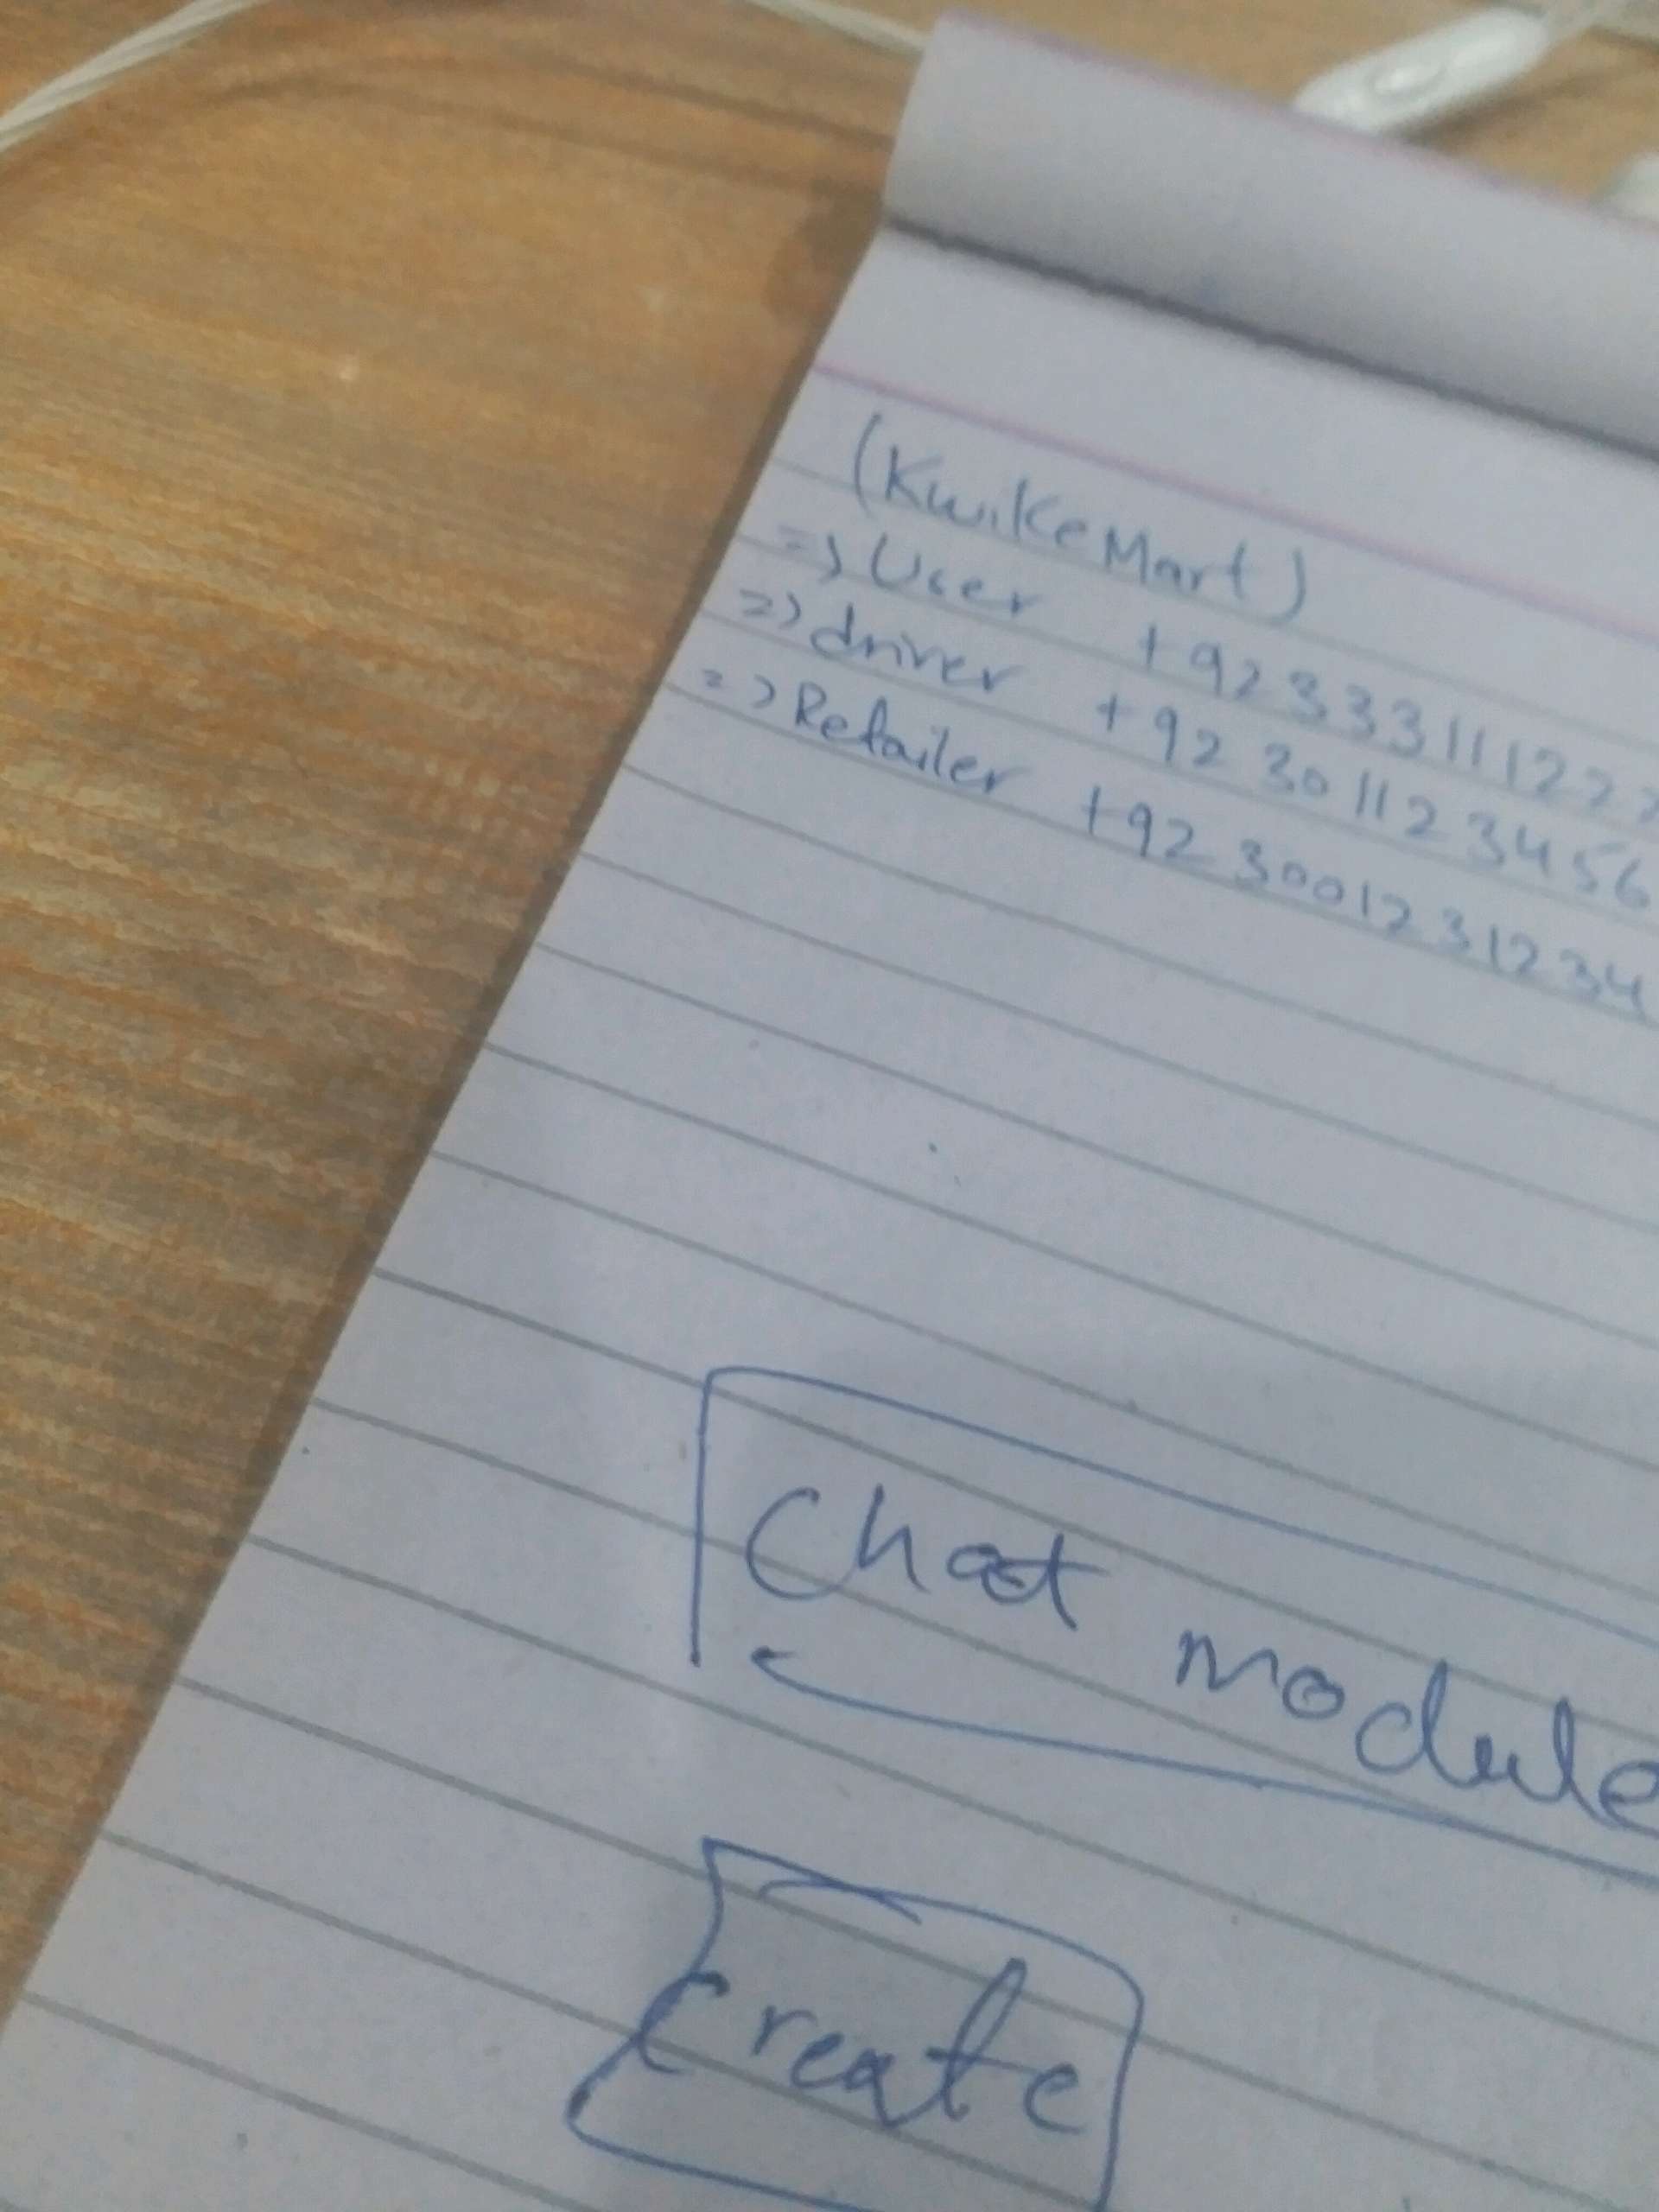 (KwikeMart)
=> User +92333111222
=> driver +92 3011123456
=> Retailer +92 3001231234
Chat module
Create